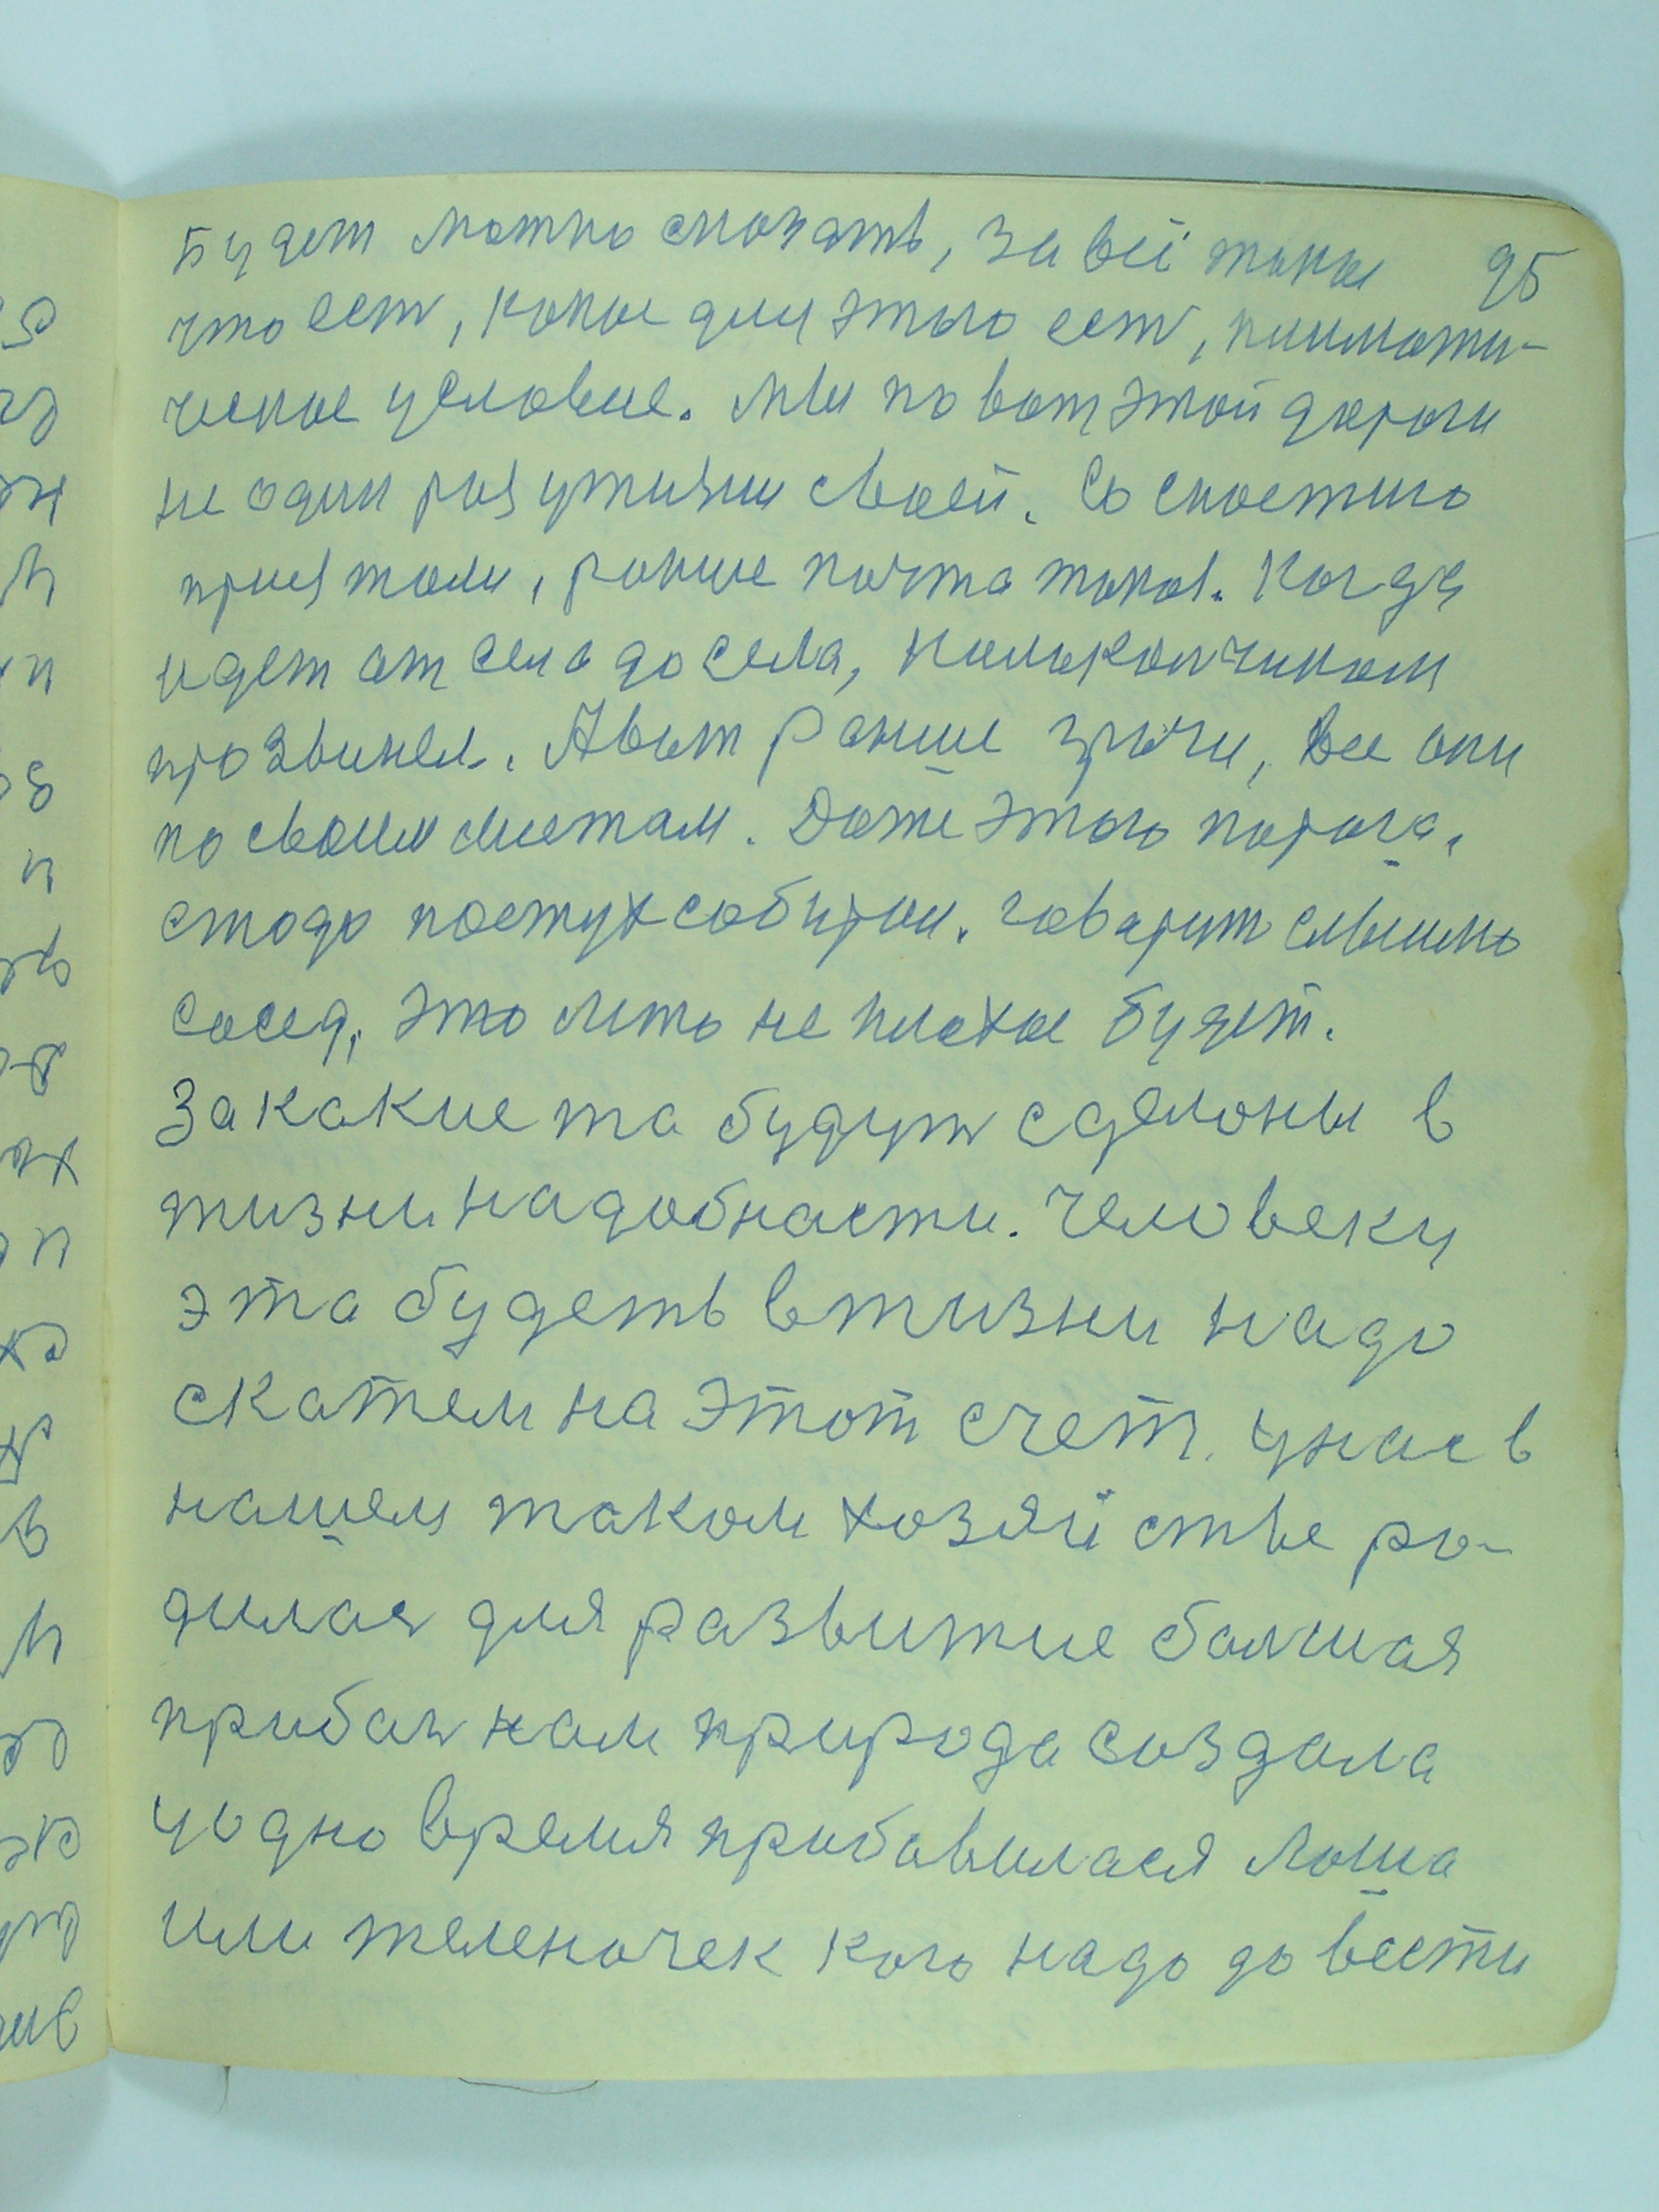 будет можно сказать, за всё такое 95
что ест, какое для этого ест, климати-
ческое условие. Мы по вот этой дороги
не один раз у жизни своей. Со скостью
приезжали, ранше почта такая. Когда
идет от села до села, колокольчиком
прозвинел. А вот ранше грачи, все они
по своим местам. Даже этого порога,
стадо пастух собирал. говарит слышно
сосед, это лето не плохое будет.
За какие та будут сделоны в
жизни надобности. Человеку
эта будеть в жизни надо
скажем на этот счет. у нас в
нашем таком хозяйстве ро-
дилас для развитие балшая
прибал нам природа создала
у одно время прибавилася лоша
или желеночек кого надо довести